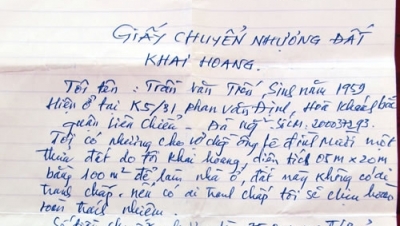 GIẤY CHUYỂN NHƯỢNG ĐẤT
KHAI HOANG.
Tôi tên : Trần Văn Tiến Sinh năm 1959
Hiện ở tại K5/31 phan Văn Định, Hoà Khánh bắc
quận Liên Chiểu. Đà Nẵng. Số CM. 200037293.
Tôi có nhượng cho vợ chồng ông Lê Đình Mười một
thửa đất do tôi khai hoang, diện tích 05m x 20m
bằng 100m² để làm nhà ở, đất này không có ai
tranh chấp. nếu có ai tranh chấp tôi sẽ chịu hoàn
toàn trách nhiệm.